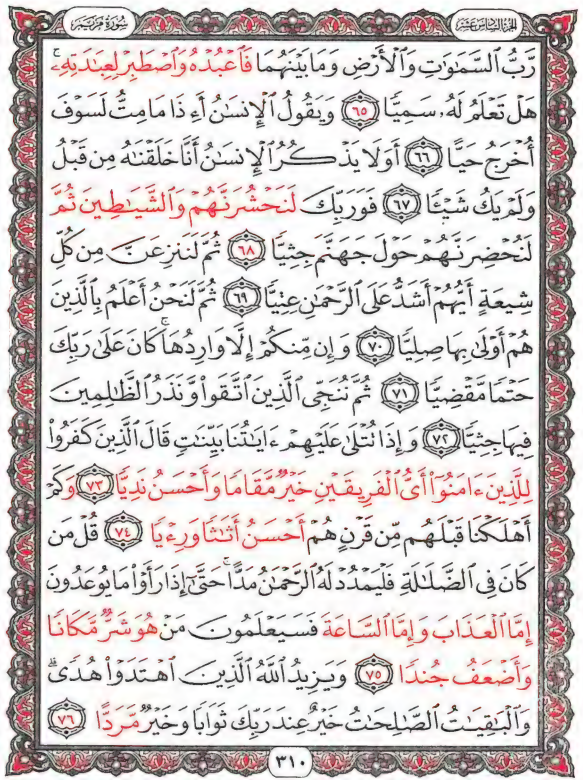 الجزء السادس عشر
سورة مريم
رَّبُّ السَّمَٰوَٰتِ وَالْأَرْضِ وَمَا بَيْنَهُمَا فَاعْبُدْهُ وَاصْطَبِرْ لِعِبَٰدَتِهِۦۚ
هَلْ تَعْلَمُ لَهُۥ سَمِيًّا ٦٥ وَيَقُولُ الْإِنسَٰنُ أَءِذَا مَا مِتُّ لَسَوْفَ
أُخْرَجُ حَيًّا ٦٦ أَوَلَا يَذْكُرُ الْإِنسَٰنُ أَنَّا خَلَقْنَٰهُ مِن قَبْلُ
وَلَمْ يَكُ شَيْـًٔا ٦٧ فَوَرَبِّكَ لَنَحْشُرَنَّهُمْ وَالشَّيَٰطِينَ ثُمَّ
لَنُحْضِرَنَّهُمْ حَوْلَ جَهَنَّمَ جِثِيًّا ٦٨ ثُمَّ لَنَنزِعَنَّ مِن كُلِّ
شِيعَةٍ أَيُّهُمْ أَشَدُّ عَلَى الرَّحْمَٰنِ عِتِيًّا ٦٩ ثُمَّ لَنَحْنُ أَعْلَمُ بِالَّذِينَ
هُمْ أَوْلَىٰ بِهَا صِلِيًّا ٧٠ وَإِن مِّنكُمْ إِلَّا وَارِدُهَاۚ كَانَ عَلَىٰ رَبِّكَ
حَتْمًا مَّقْضِيًّا ٧١ ثُمَّ نُنَجِّي الَّذِينَ اتَّقَوا۟ وَّنَذَرُ الظَّٰلِمِينَ
فِيهَا جِثِيًّا ٧٢ وَإِذَا تُتْلَىٰ عَلَيْهِمْ ءَايَٰتُنَا بَيِّنَٰتٍ قَالَ الَّذِينَ كَفَرُوا۟
لِلَّذِينَ ءَامَنُوٓا۟ أَيُّ الْفَرِيقَيْنِ خَيْرٌ مَّقَامًا وَأَحْسَنُ نَدِيًّا ٧٣ وَكَمْ
أَهْلَكْنَا قَبْلَهُم مِّن قَرْنٍ هُمْ أَحْسَنُ أَثَٰثًا وَرِءْيًا ٧٤ قُلْ مَن
كَانَ فِي الضَّلَٰلَةِ فَلْيَمْدُدْ لَهُ الرَّحْمَٰنُ مَدًّاۚ حَتَّىٰٓ إِذَا رَأَوْا۟ مَا يُوعَدُونَ
إِمَّا الْعَذَابَ وَإِمَّا السَّاعَةَ فَسَيَعْلَمُونَ مَنْ هُوَ شَرٌّ مَّكَانًا
وَأَضْعَفُ جُندًا ٧٥ وَيَزِيدُ اللَّهُ الَّذِينَ اهْتَدَوْا۟ هُدًىۗ
وَالْبَٰقِيَٰتُ الصَّٰلِحَٰتُ خَيْرٌ عِندَ رَبِّكَ ثَوَابًا وَخَيْرٌ مَّرَدًّا ٧٦
٣١٠